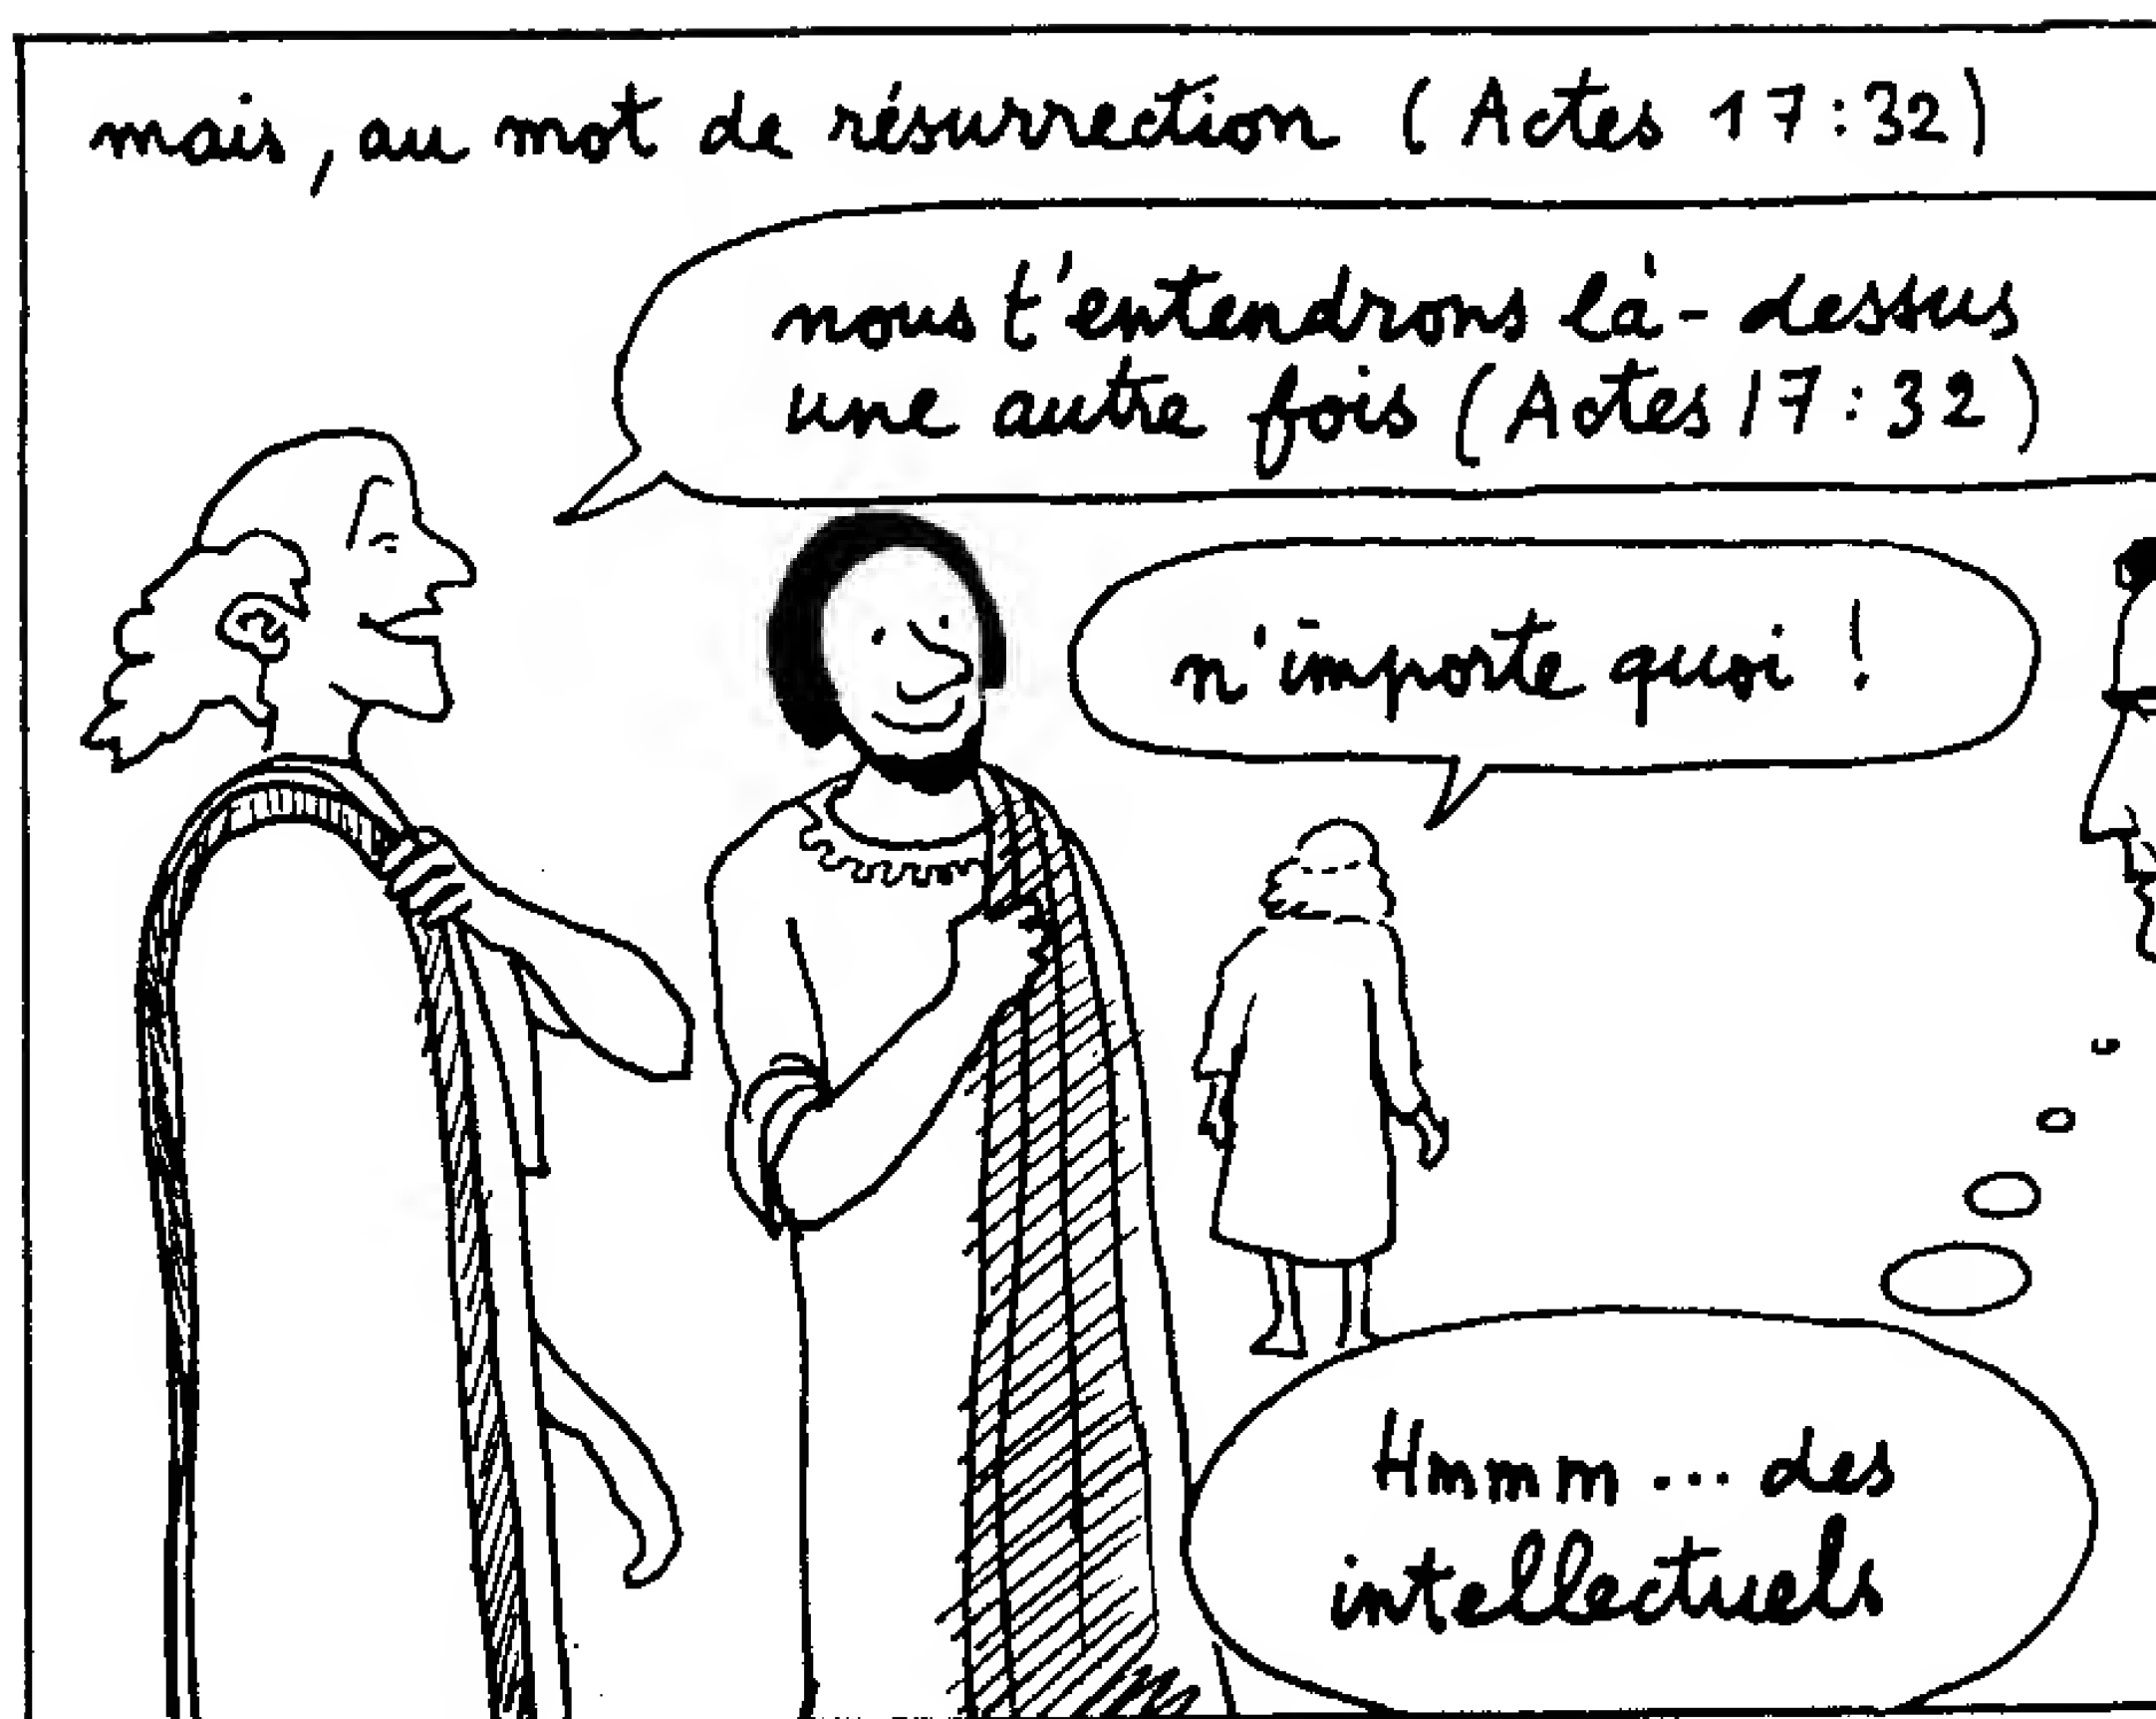 mais, au mot de résurrection (Actes 17:32)
nous t'entendrons là-dessus
une autre fois (Actes 17:32)
n'importe quoi !
Hmmm... des
intellectuels